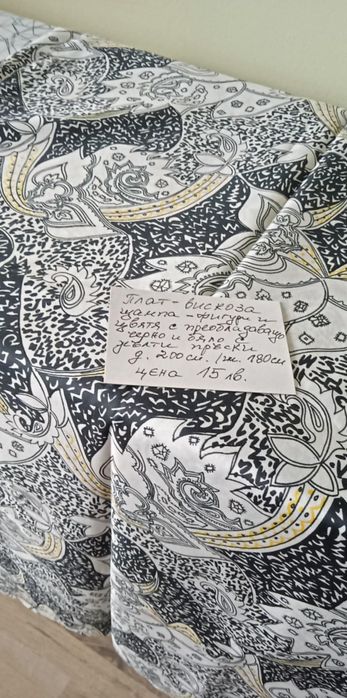 Плат - вискоза
щампа - фигури и
цветя с преобладаващо
черно и бяло с
жълти пръски
д. 200см. / ш. 180см
цена 15 лв.